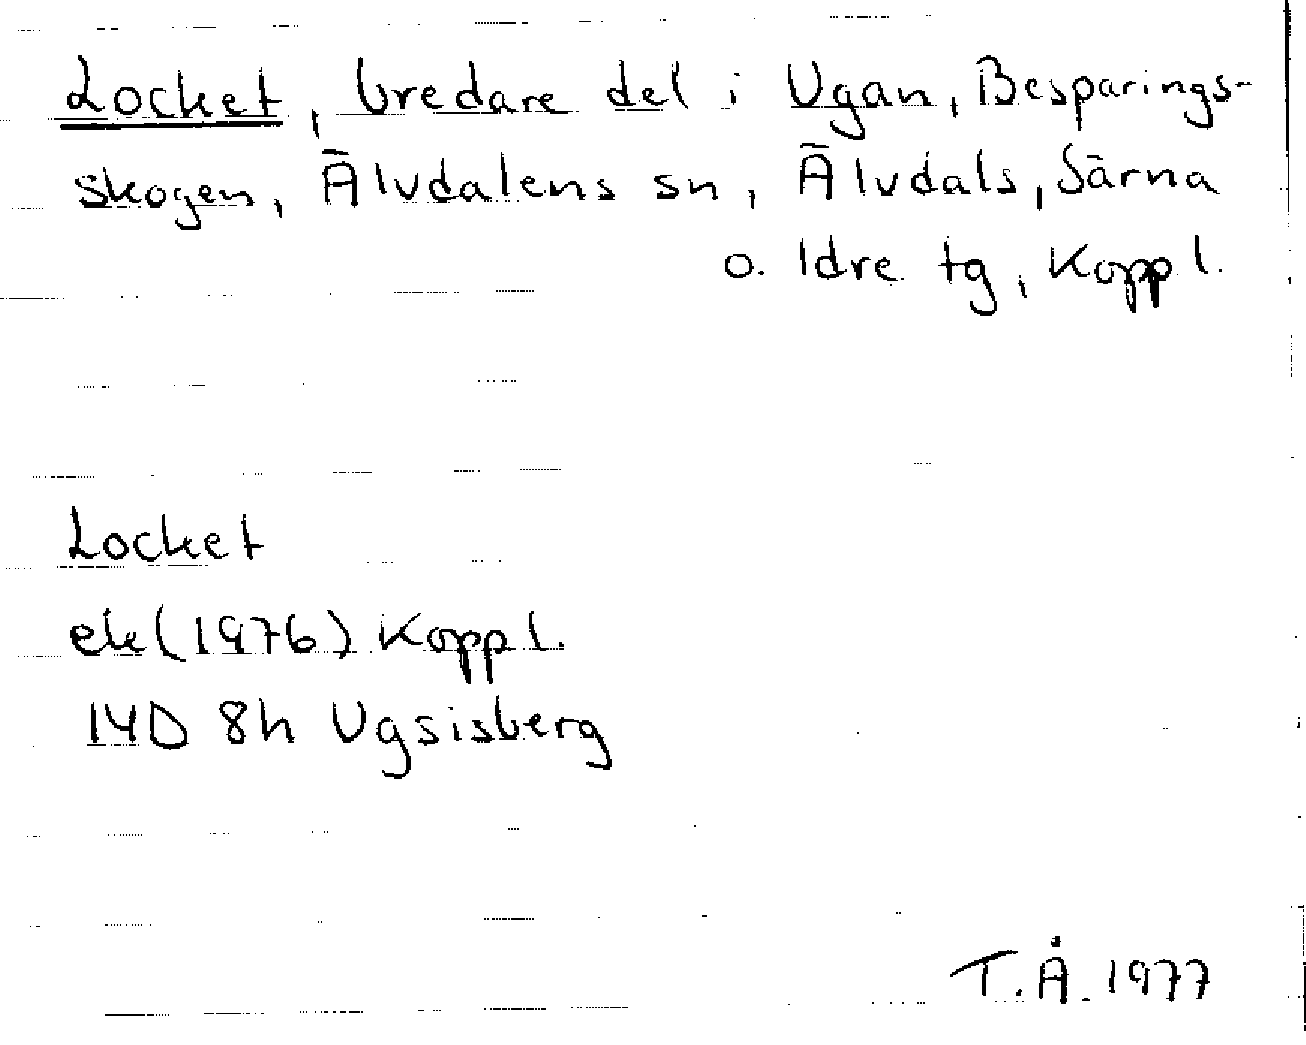 Locket, bredare del i Ugan, Besparings-
skogen, Älvdalens sn, Älvdals, Särna
o. Idre tg, Koppl.
Locket
ek(1976) Koppl.
14D 8h Ugsisberg
T.Å. 1977